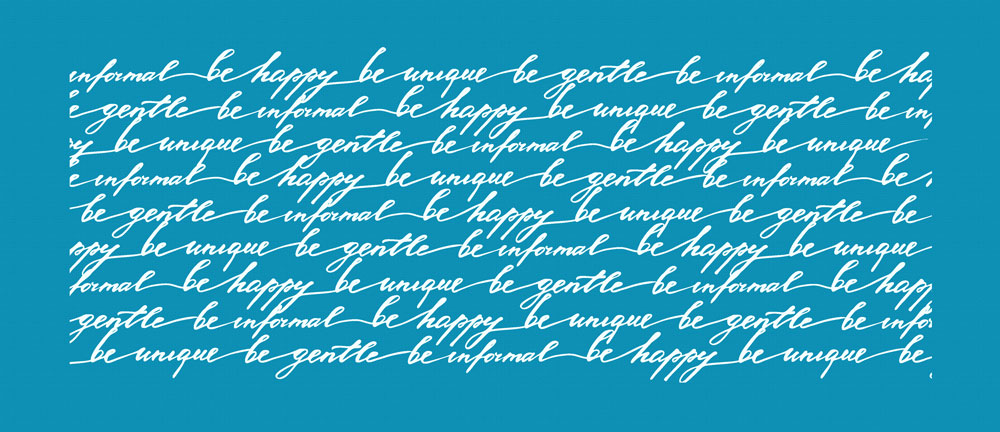 informal be happy be unique be gentle be informal be ha
gentle be informal be happy be unique be gentle be in
be unique be gentle be informal be happy be unique
informal be happy be unique be gentle be informal be
be gentle be informal be happy be unique be gentle be
ppy be unique be gentle be informal be happy be unique
formal be happy be unique be gentle be informal be happ
gentle be informal be happy be unique be gentle be info
be unique be gentle be informal be happy be unique be